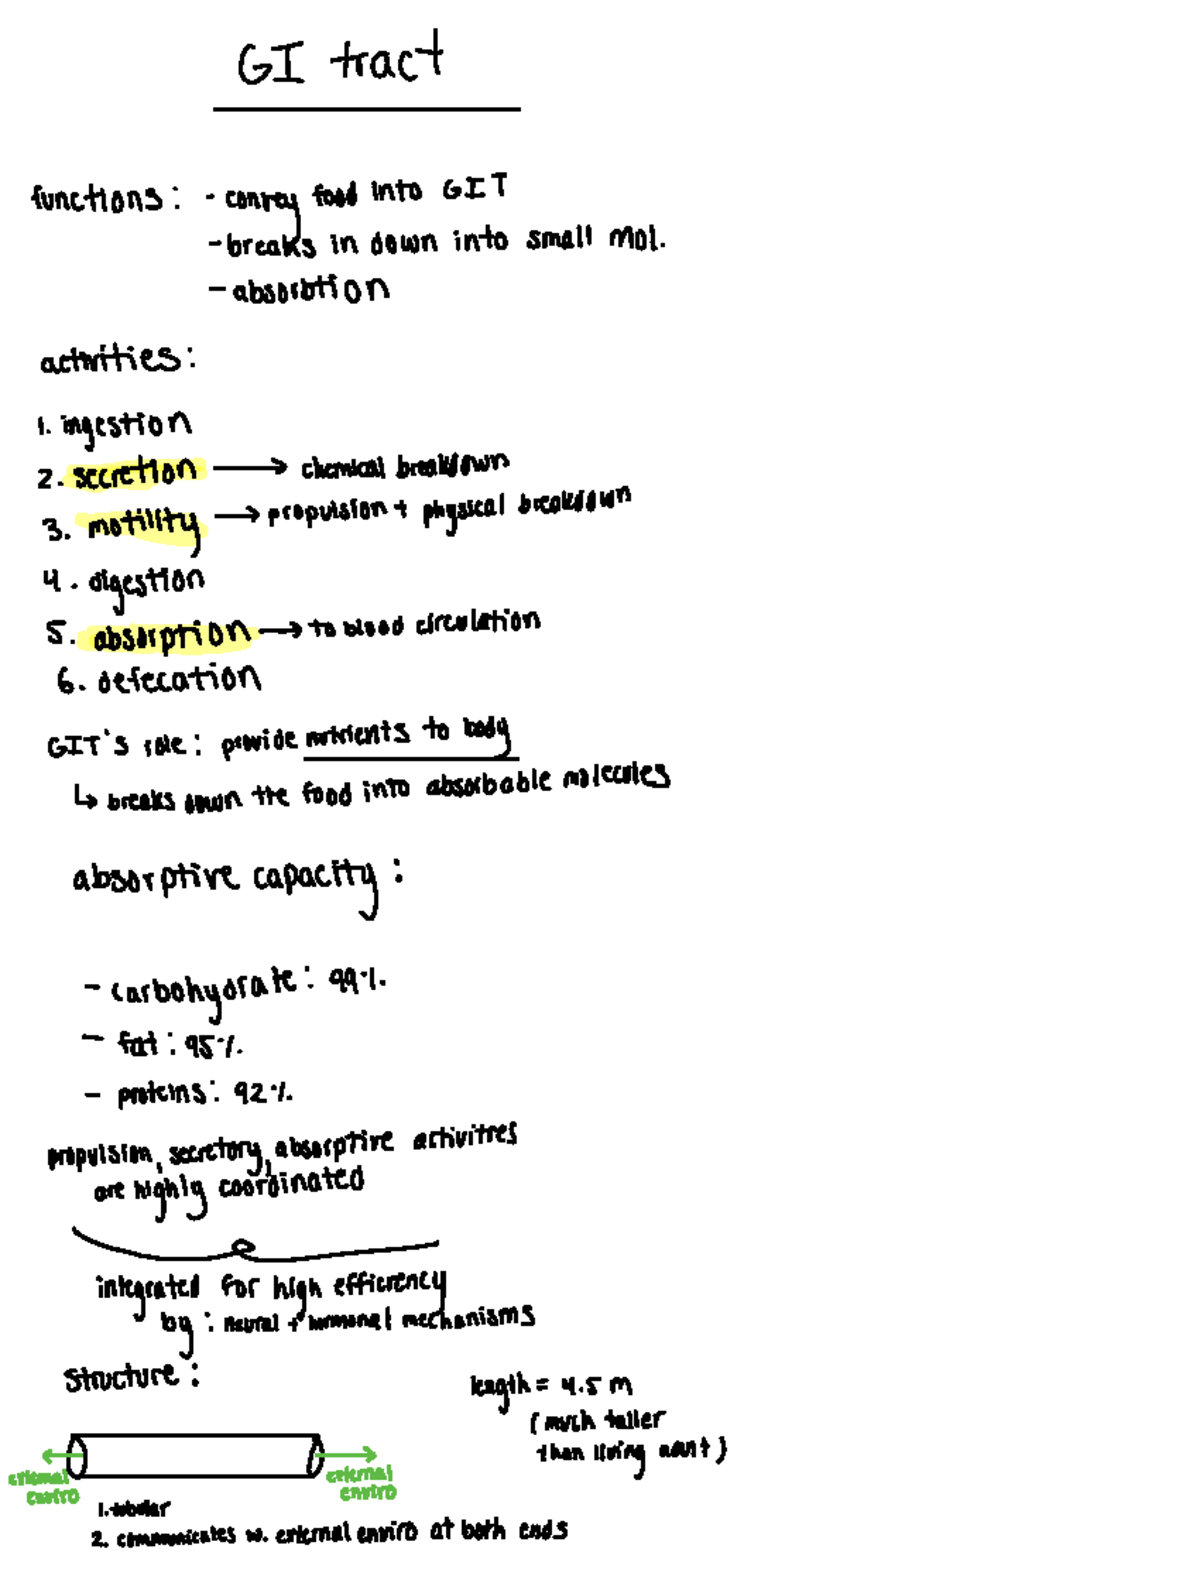 GI tract
functions: - convey food into GIT
- breaks in down into small mol.
- absorbtion
activities:
1. ingestion
2. secretion → chemical breakdown
3. motility → propulsion + physical breakdown
4. digestion
5. absorption → to blood circulation
6. defecation
GIT's role: provide nutrients to body
↳ breaks down the food into absorbable molecules
absorptive capacity:
- carbohydrate: 99%
- fat: 95%
- proteins: 92%
propulsion, secretory, absorptive activities
are highly coordinated
integrated for high efficiency
by: neural + hormonal mechanisms
Structure:
length = 4.5 m
(much taller
than living adult)
external
enviro
external
enviro
1. tubular
2. communicates w. external enviro at both ends